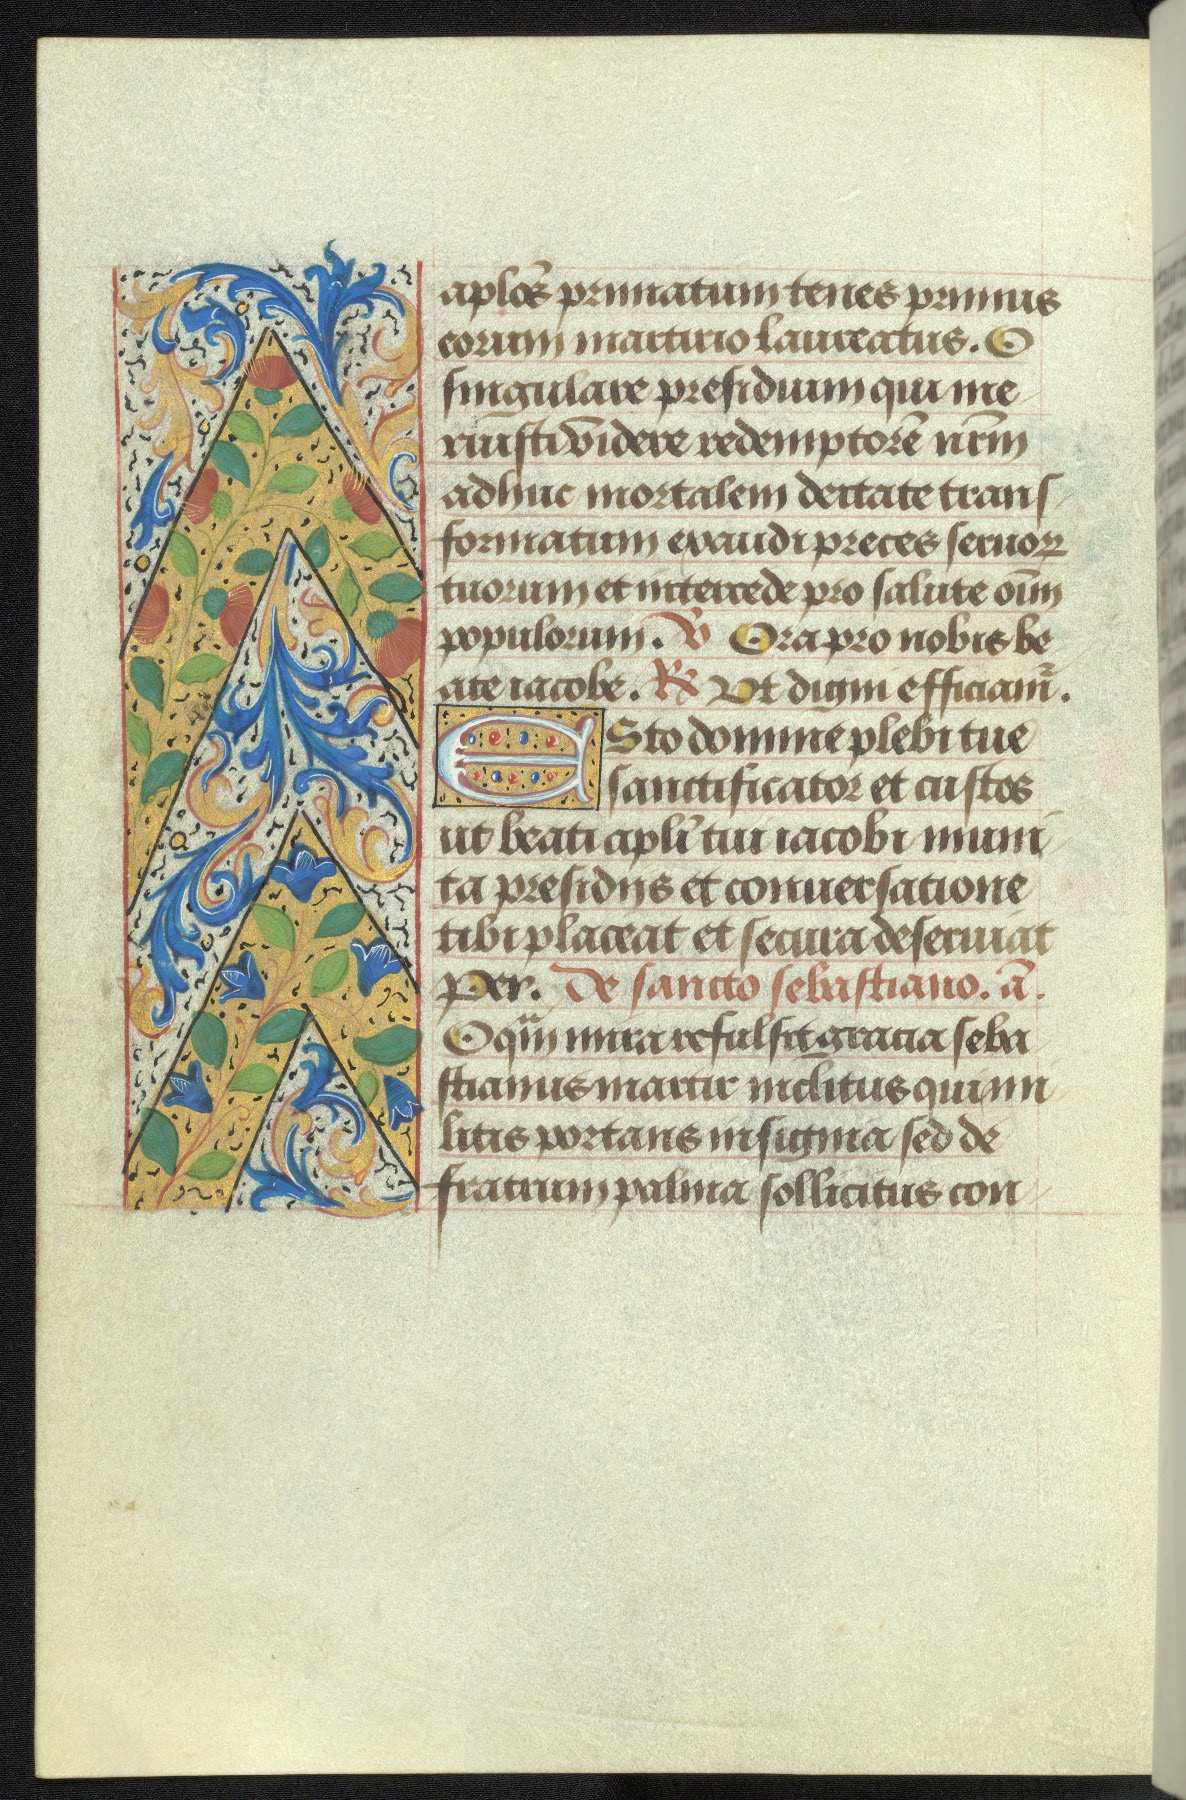 aplōs primatum tenes primus
eorum martirio laureatus. O
singulare presidium qui me
ruisti videre redemptorē nrm̄
adhuc mortalem deitate trans
formatum exaudi preces seruoꝝ
tuorum et intercede pro salute oīm
populorum. V̄ Ora pro nobis be
ate iacobe. R̄ Vt digni efficiam̄.
ESto domine plebi tue
sanctificator et custos
ut beati apli tui iacobi muni
ta presidijs et conuersatione
tibi placeat et secura deseruiat
Per. De sancto sebastiano. ā.
O qm̄ mira refulsit gracia seba
stianus martir inclitus qui mi
litis portans insignia sed de
fratrum palma sollicitus con